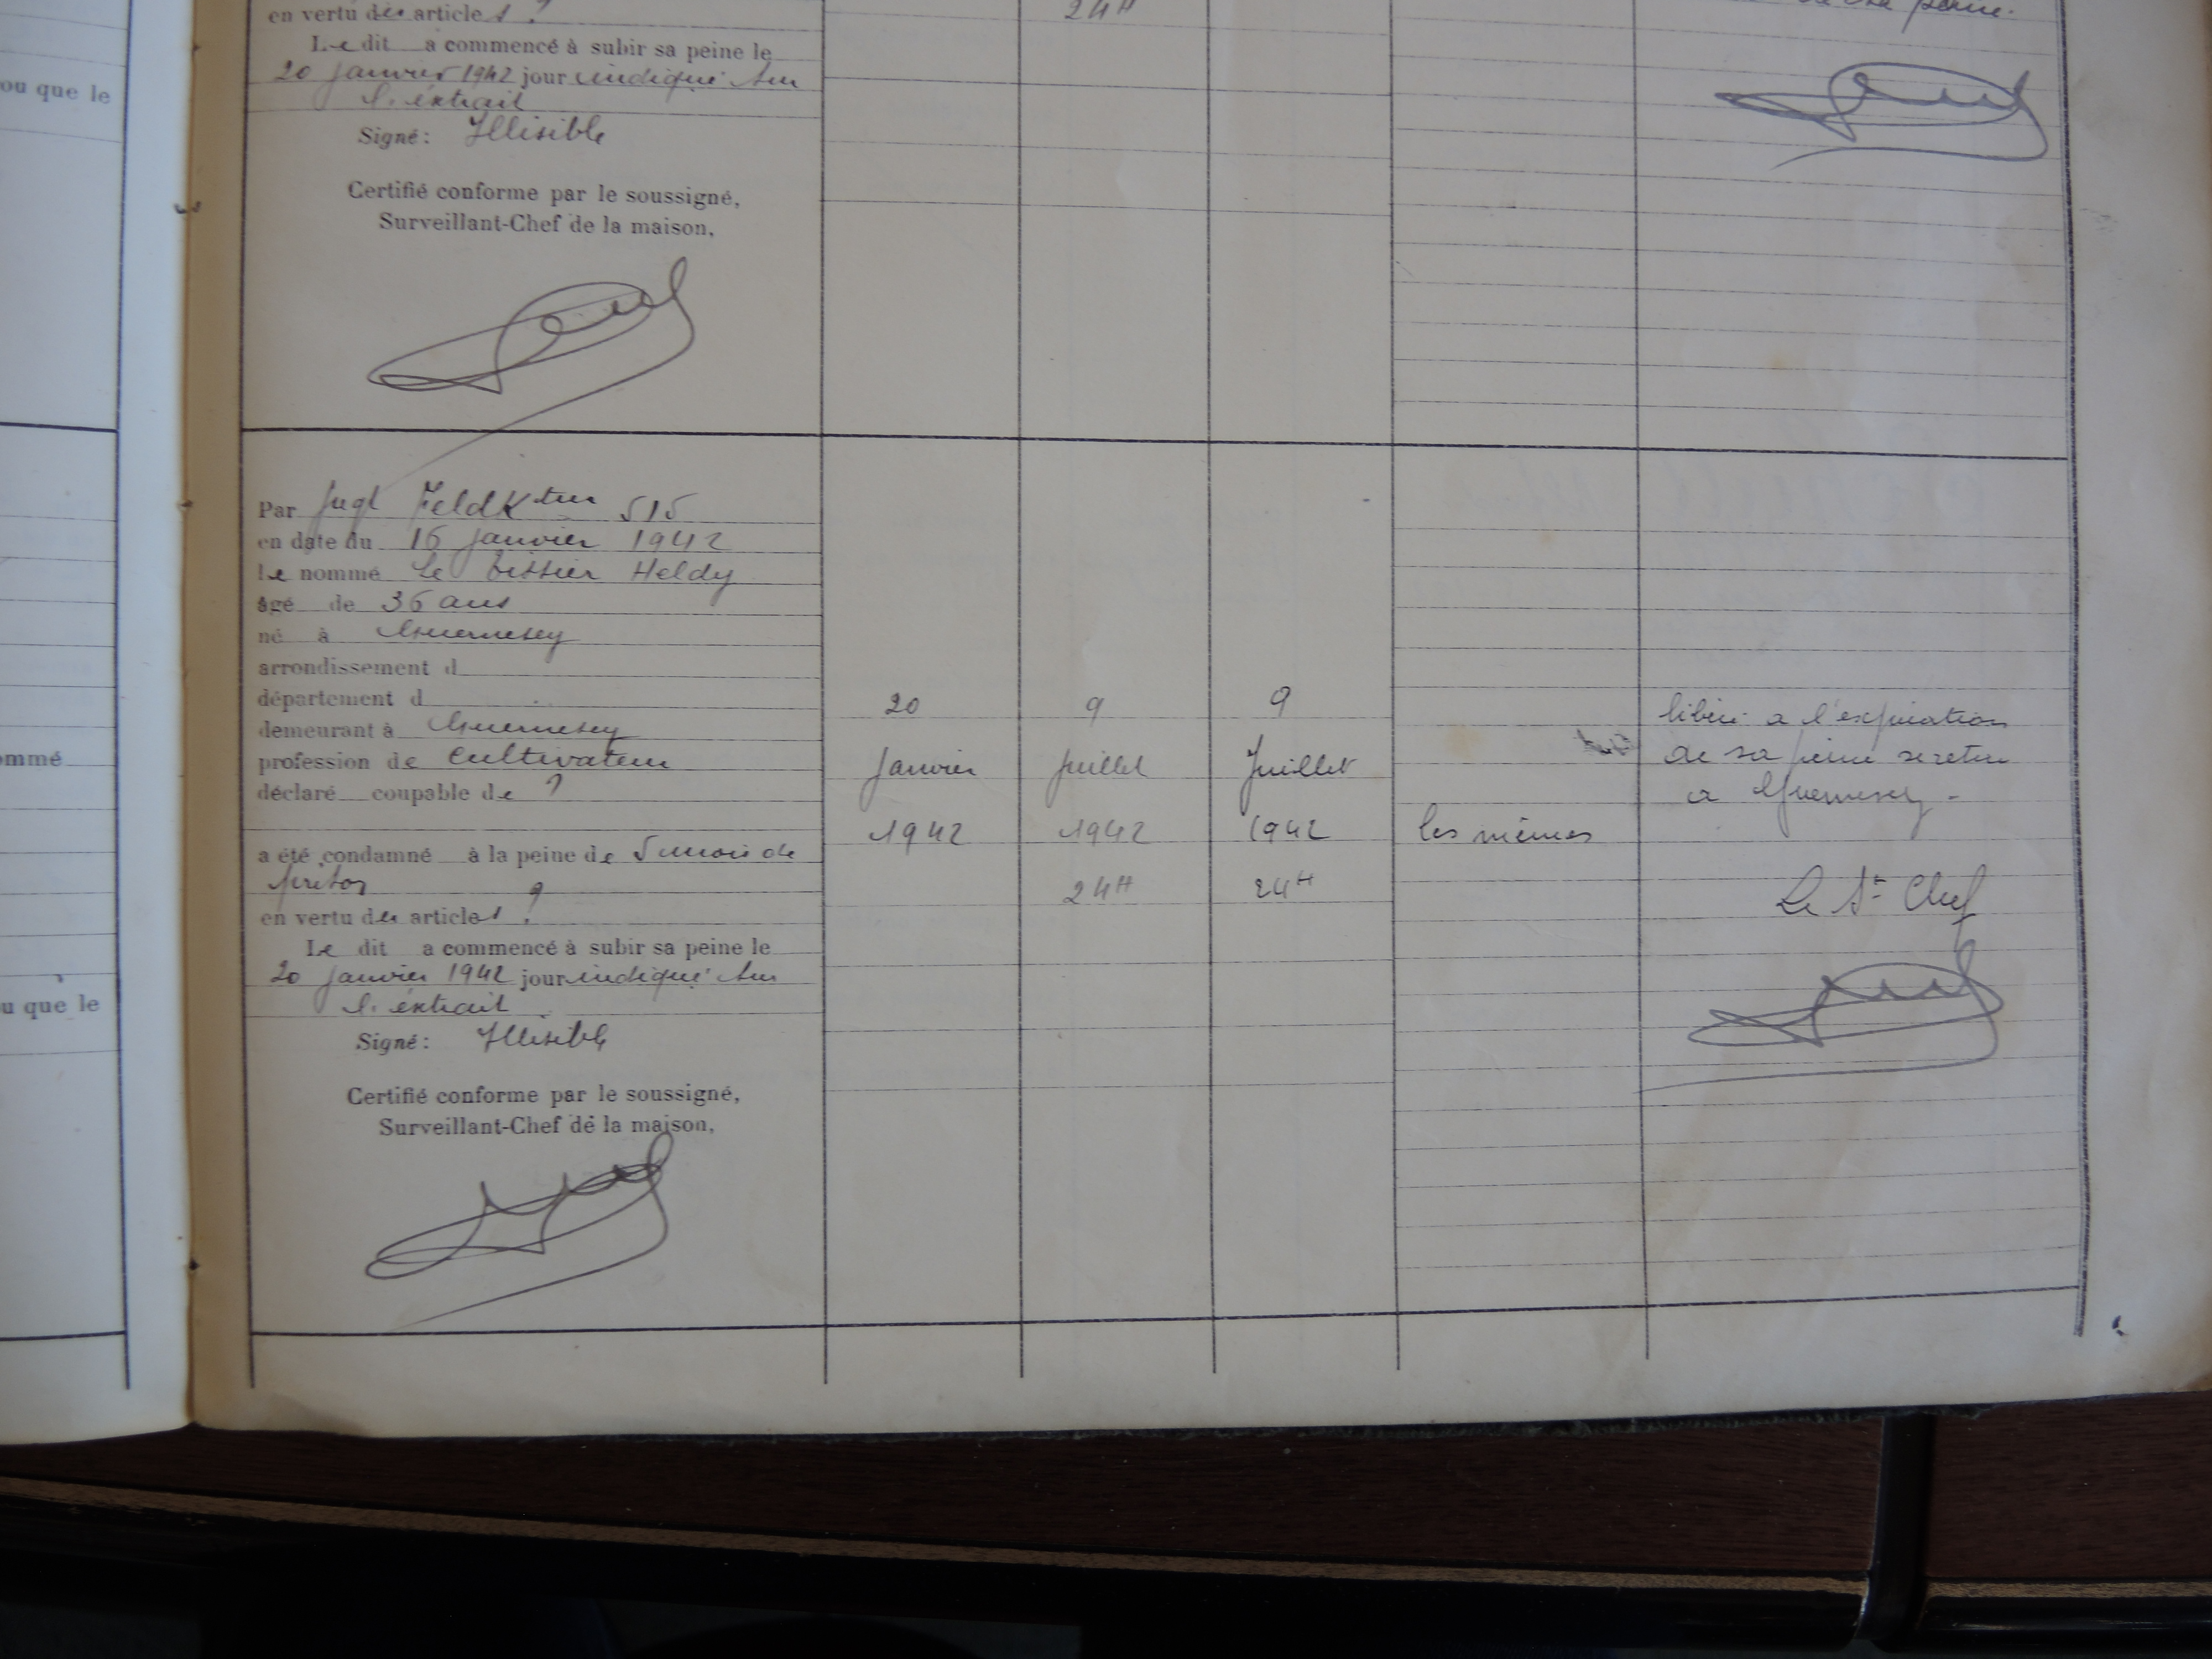 ou que le
ommé
u que le
en vertu des articles ?
24H
de sa peine.
Le dit a commencé à subir sa peine le
20 janvier 1942 jour indiqué sur
l'éxtrait
Signé: Illisible
Certifié conforme par le soussigné,
Surveillant-Chef de la maison,
Par Jugt FeldKtur 515
en date du 16 janvier 1942
Le nommé Le Tissier Heldy
âgé de 36 ans
né à Guernesey
arrondissement d
département d
demeurant à Guernesey
profession de Cultivateur
déclaré coupable de ?
a été condamné à la peine de 5 mois de
prison
en vertu des articles ?
Le dit a commencé à subir sa peine le
20 janvier 1942 jour indiqué sur
l'éxtrait
Signé: Illisible
Certifié conforme par le soussigné,
Surveillant-Chef de la maison,
20
Janvier
1942
9
juillet
1942
24H
9
Juillet
1942
24H
les mêmes
libéré a l'expiration
de sa peine se retire
a Guernesey -
Le St Chef